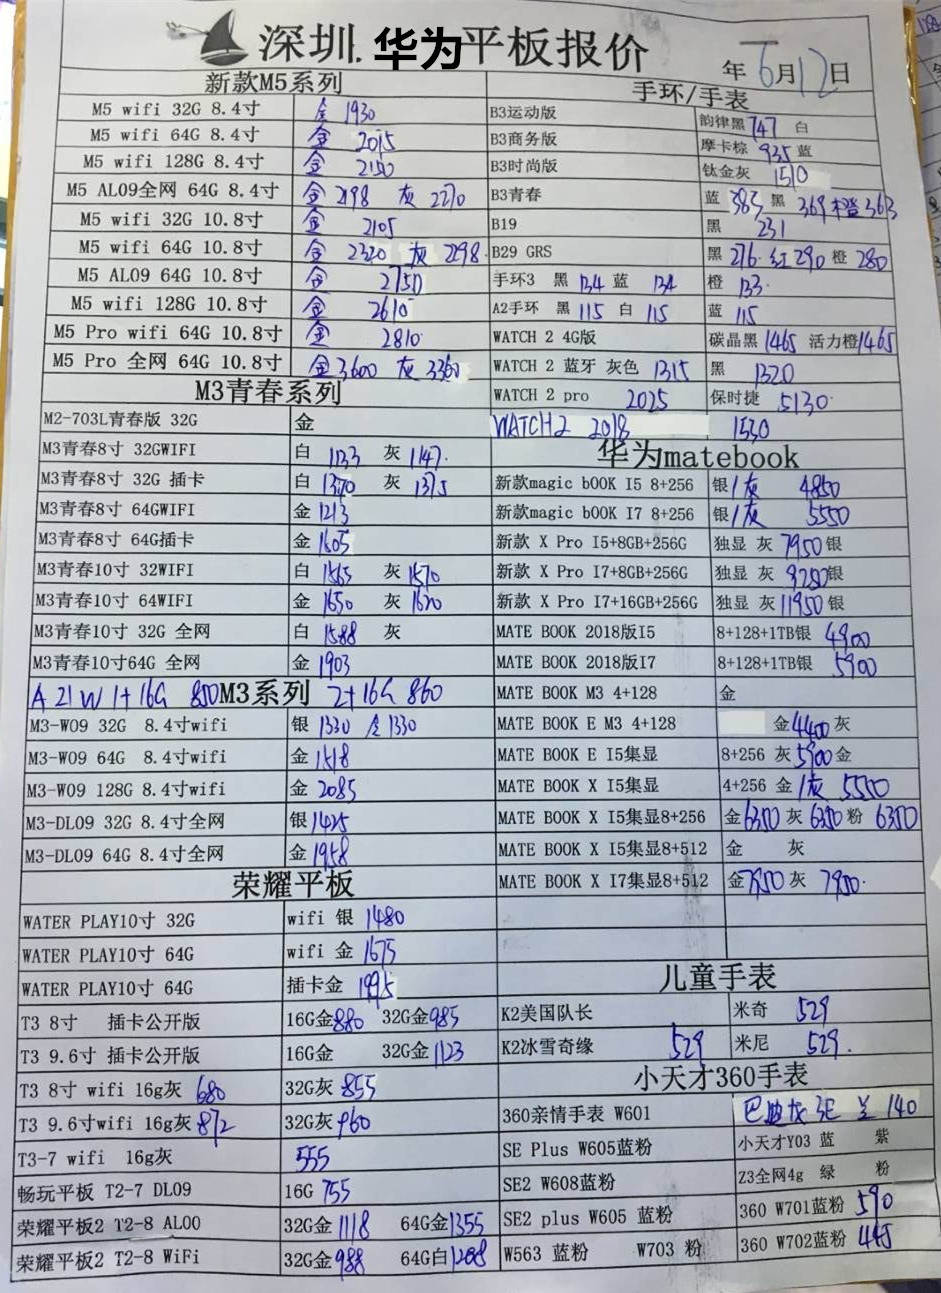 深圳.华为平板报价
年6月12日
新款M5系列
M5 wifi 32G 8.4寸 金 1930
M5 wifi 64G 8.4寸 金 2015
M5 wifi 128G 8.4寸 金 2150
M5 AL09全网 64G 8.4寸 金 2198 灰 2270
M5 wifi 32G 10.8寸 金 2105
M5 wifi 64G 10.8寸 金 2320 灰 2298
M5 AL09 64G 10.8寸 金 2750
M5 wifi 128G 10.8寸 金 2610
M5 Pro wifi 64G 10.8寸 金 2810
M5 Pro 全网 64G 10.8寸 金3600 灰 3360
M3青春系列
M2-703L青春版 32G 金
M3青春8寸 32GWIFI 白 1133 灰 1147
M3青春8寸 32G 插卡 白 1370 灰 1375
M3青春8寸 64GWIFI 金 1213
M3青春8寸 64G插卡 金 1605
M3青春10寸 32WIFI 白 1565 灰 1570
M3青春10寸 64WIFI 金 1650 灰 1620
M3青春10寸 32G 全网 白 1588 灰
M3青春10寸64G 全网 金 1903
A 21 W 1+16G 850 M3系列 2+16G 860
M3-W09 32G 8.4寸wifi 银 1330 金 1330
M3-W09 64G 8.4寸wifi 金 1518
M3-W09 128G 8.4寸wifi 金 2085
M3-DL09 32G 8.4寸全网 银 1425
M3-DL09 64G 8.4寸全网 金 1958
荣耀平板
WATER PLAY10寸 32G wifi 银 1480
WATER PLAY10寸 64G wifi 金 1675
WATER PLAY10寸 64G 插卡金 1995
T3 8寸 插卡公开版 16G金880 32G金985
T3 9.6寸 插卡公开版 16G金 32G金 1123
T3 8寸 wifi 16g灰 680 32G灰 855
T3 9.6寸wifi 16g灰 872 32G灰 960
T3-7 wifi 16g灰 555
畅玩平板 T2-7 DL09 16G 755
荣耀平板2 T2-8 AL00 32G金 1118 64G金1355
荣耀平板2 T2-8 WiFi 32G金 988 64G白1208
手环/手表
B3运动版 韵律黑 747 白
B3商务版 摩卡棕 935 蓝
B3时尚版 钛金灰 1510
B3青春 蓝 385 黑 369 橙 363
B19 黑 231
B29 GRS 黑 276 红 290 橙 280
手环3 黑 134 蓝 134 橙 133
A2手环 黑 115 白 115 蓝 115
WATCH 2 4G版 碳晶黑 1465 活力橙1465
WATCH 2 蓝牙 灰色 1315 黑 1320
WATCH 2 pro 2025 保时捷 5130
WATCH2 2018 1530
华为matebook
新款magic bOOK I5 8+256 银/灰 4850
新款magic bOOK I7 8+256 银/灰 5550
新款 X Pro I5+8GB+256G 独显 灰 7950 银
新款 X Pro I7+8GB+256G 独显 灰 9250 银
新款 X Pro I7+16GB+256G 独显 灰 11950 银
MATE BOOK 2018版I5 8+128+1TB银 4900
MATE BOOK 2018版I7 8+128+1TB银 5900
MATE BOOK M3 4+128 金
MATE BOOK E M3 4+128 金4400 灰
MATE BOOK E I5集显 8+256 灰5900 金
MATE BOOK X I5集显 4+256 金/灰 5550
MATE BOOK X I5集显8+256 金6350 灰 6350 粉 6350
MATE BOOK X I5集显8+512 金 灰
MATE BOOK X I7集显8+512 金7950 灰 7950
儿童手表
K2美国队长 米奇 529
K2冰雪奇缘 529 米尼 529
小天才360手表
360亲情手表 W601 巴迪龙 3E 兰 140
SE Plus W605蓝粉 小天才Y03 蓝 紫
SE2 W608蓝粉 Z3全网4g 绿 粉
SE2 plus W605 蓝粉 360 W701蓝粉 590
W563 蓝粉 W703 粉 360 W702蓝粉 445